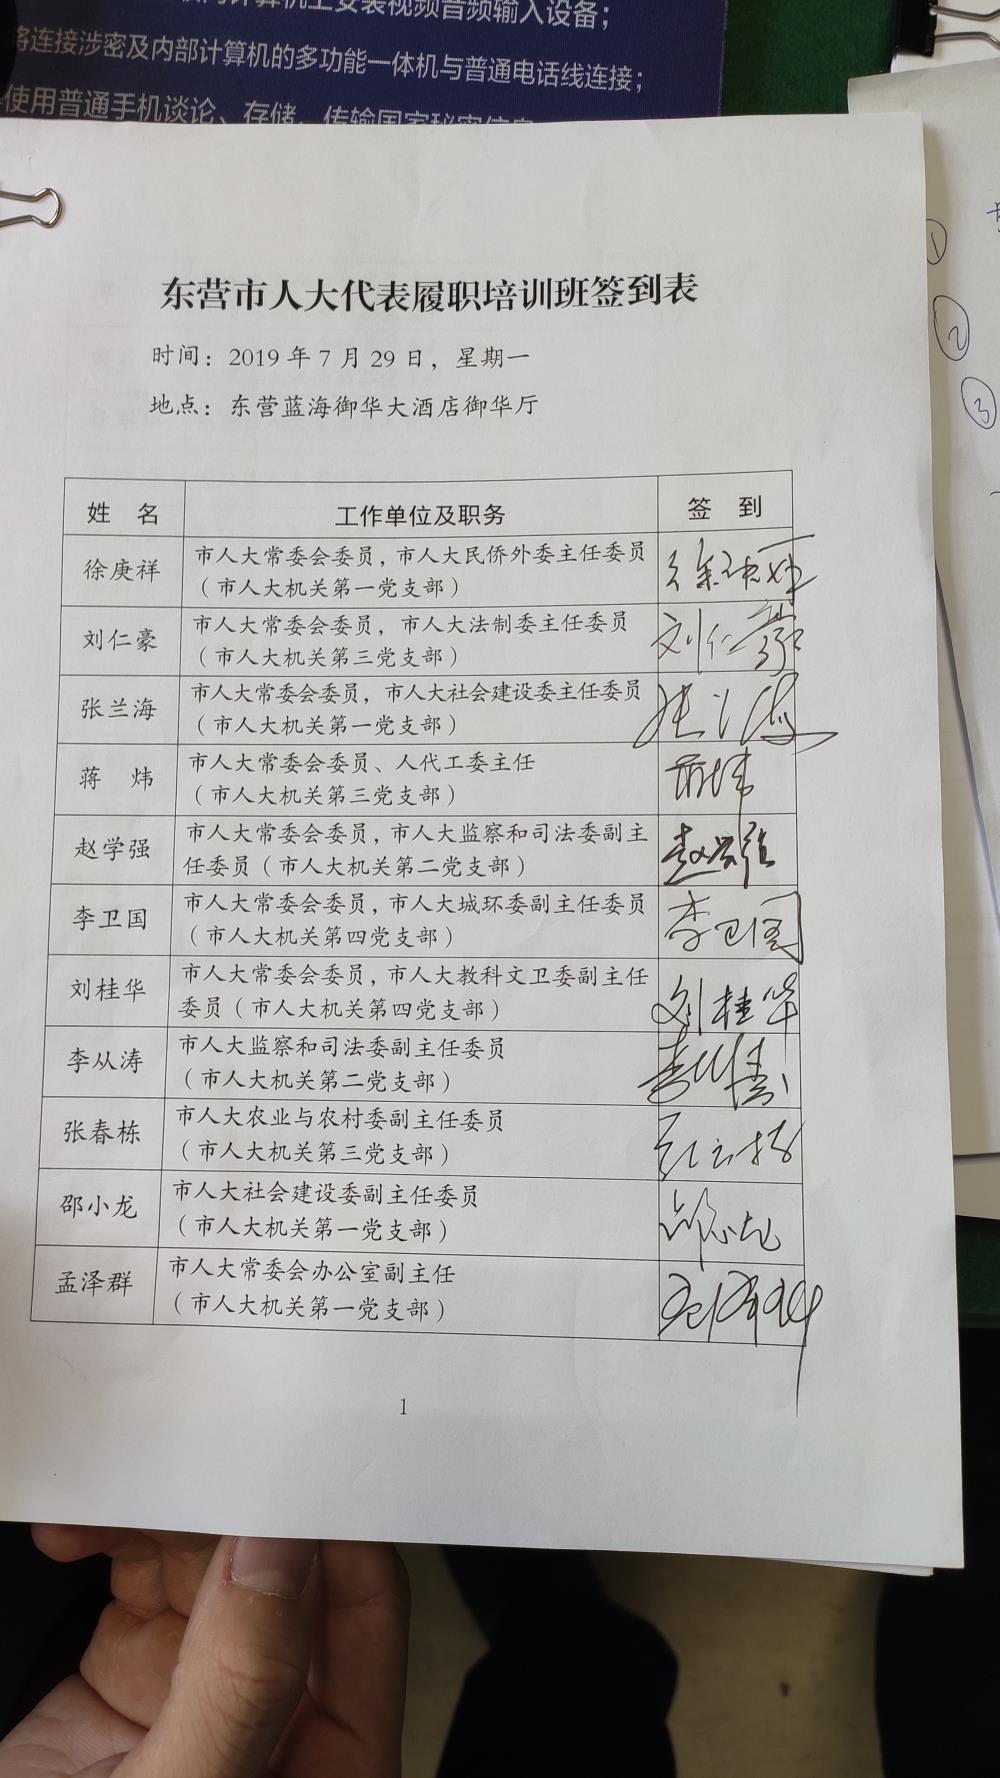 将连接涉密及内部计算机的多功能一体机与普通电话线连接；
使用普通手机谈论、存储、传输国家秘密信息
东营市人大代表履职培训班签到表
时间：2019 年 7 月 29 日，星期一
地点：东营蓝海御华大酒店御华厅
姓 名 工作单位及职务 签 到
徐庚祥 市人大常委会委员，市人大民侨外委主任委员
（市人大机关第一党支部）
刘仁豪 市人大常委会委员，市人大法制委主任委员
（市人大机关第三党支部） 刘仁豪
张兰海 市人大常委会委员，市人大社会建设委主任委员
（市人大机关第一党支部）
蒋 炜 市人大常委会委员、人代工委主任
（市人大机关第三党支部）
赵学强 市人大常委会委员，市人大监察和司法委副主
任委员（市人大机关第二党支部） 赵学强
李卫国 市人大常委会委员，市人大城环委副主任委员
（市人大机关第四党支部） 李卫国
刘桂华 市人大常委会委员，市人大教科文卫委副主任
委员（市人大机关第四党支部） 刘桂华
李从涛 市人大监察和司法委副主任委员
（市人大机关第二党支部） 李从涛
张春栋 市人大农业与农村委副主任委员
（市人大机关第三党支部）
邵小龙 市人大社会建设委副主任委员
（市人大机关第一党支部）
孟泽群 市人大常委会办公室副主任
（市人大机关第一党支部）
1
①
②
③